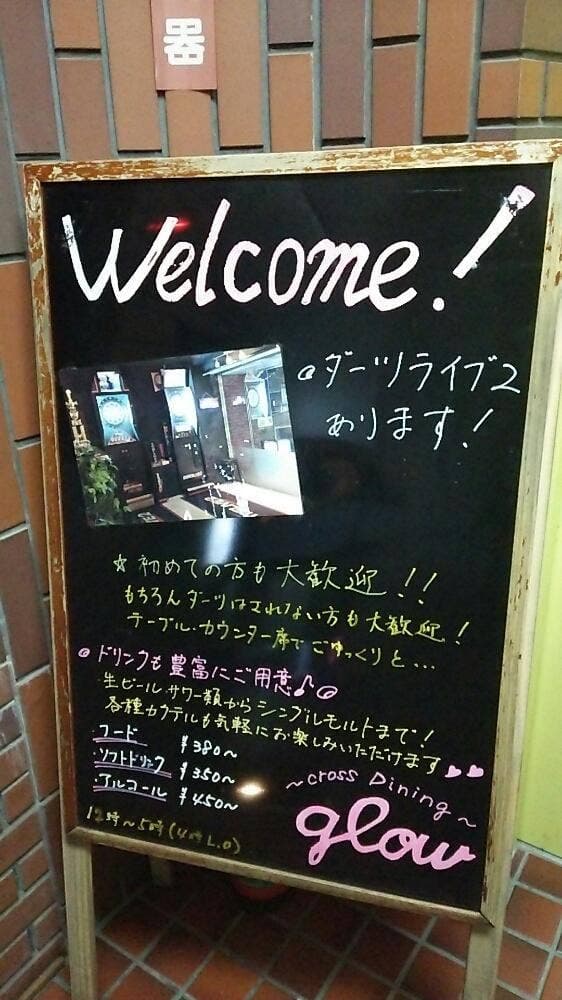 器
Welcome!
ダーツライブ2
あります!
☆初めての方も大歓迎!!
もちろんダーツはされない方も大歓迎!
テーブル・カウンター席でごゆっくりと...
ドリンクも豊富にご用意♪
生ビールサワー類からシングルモルトまで!
各種カクテルも気軽にお楽しみいただけます
・フード ¥380〜
・ソフトドリンク ¥350〜
・アルコール ¥450〜
12時〜5時(4時L.O)
〜cross Dining〜
glow